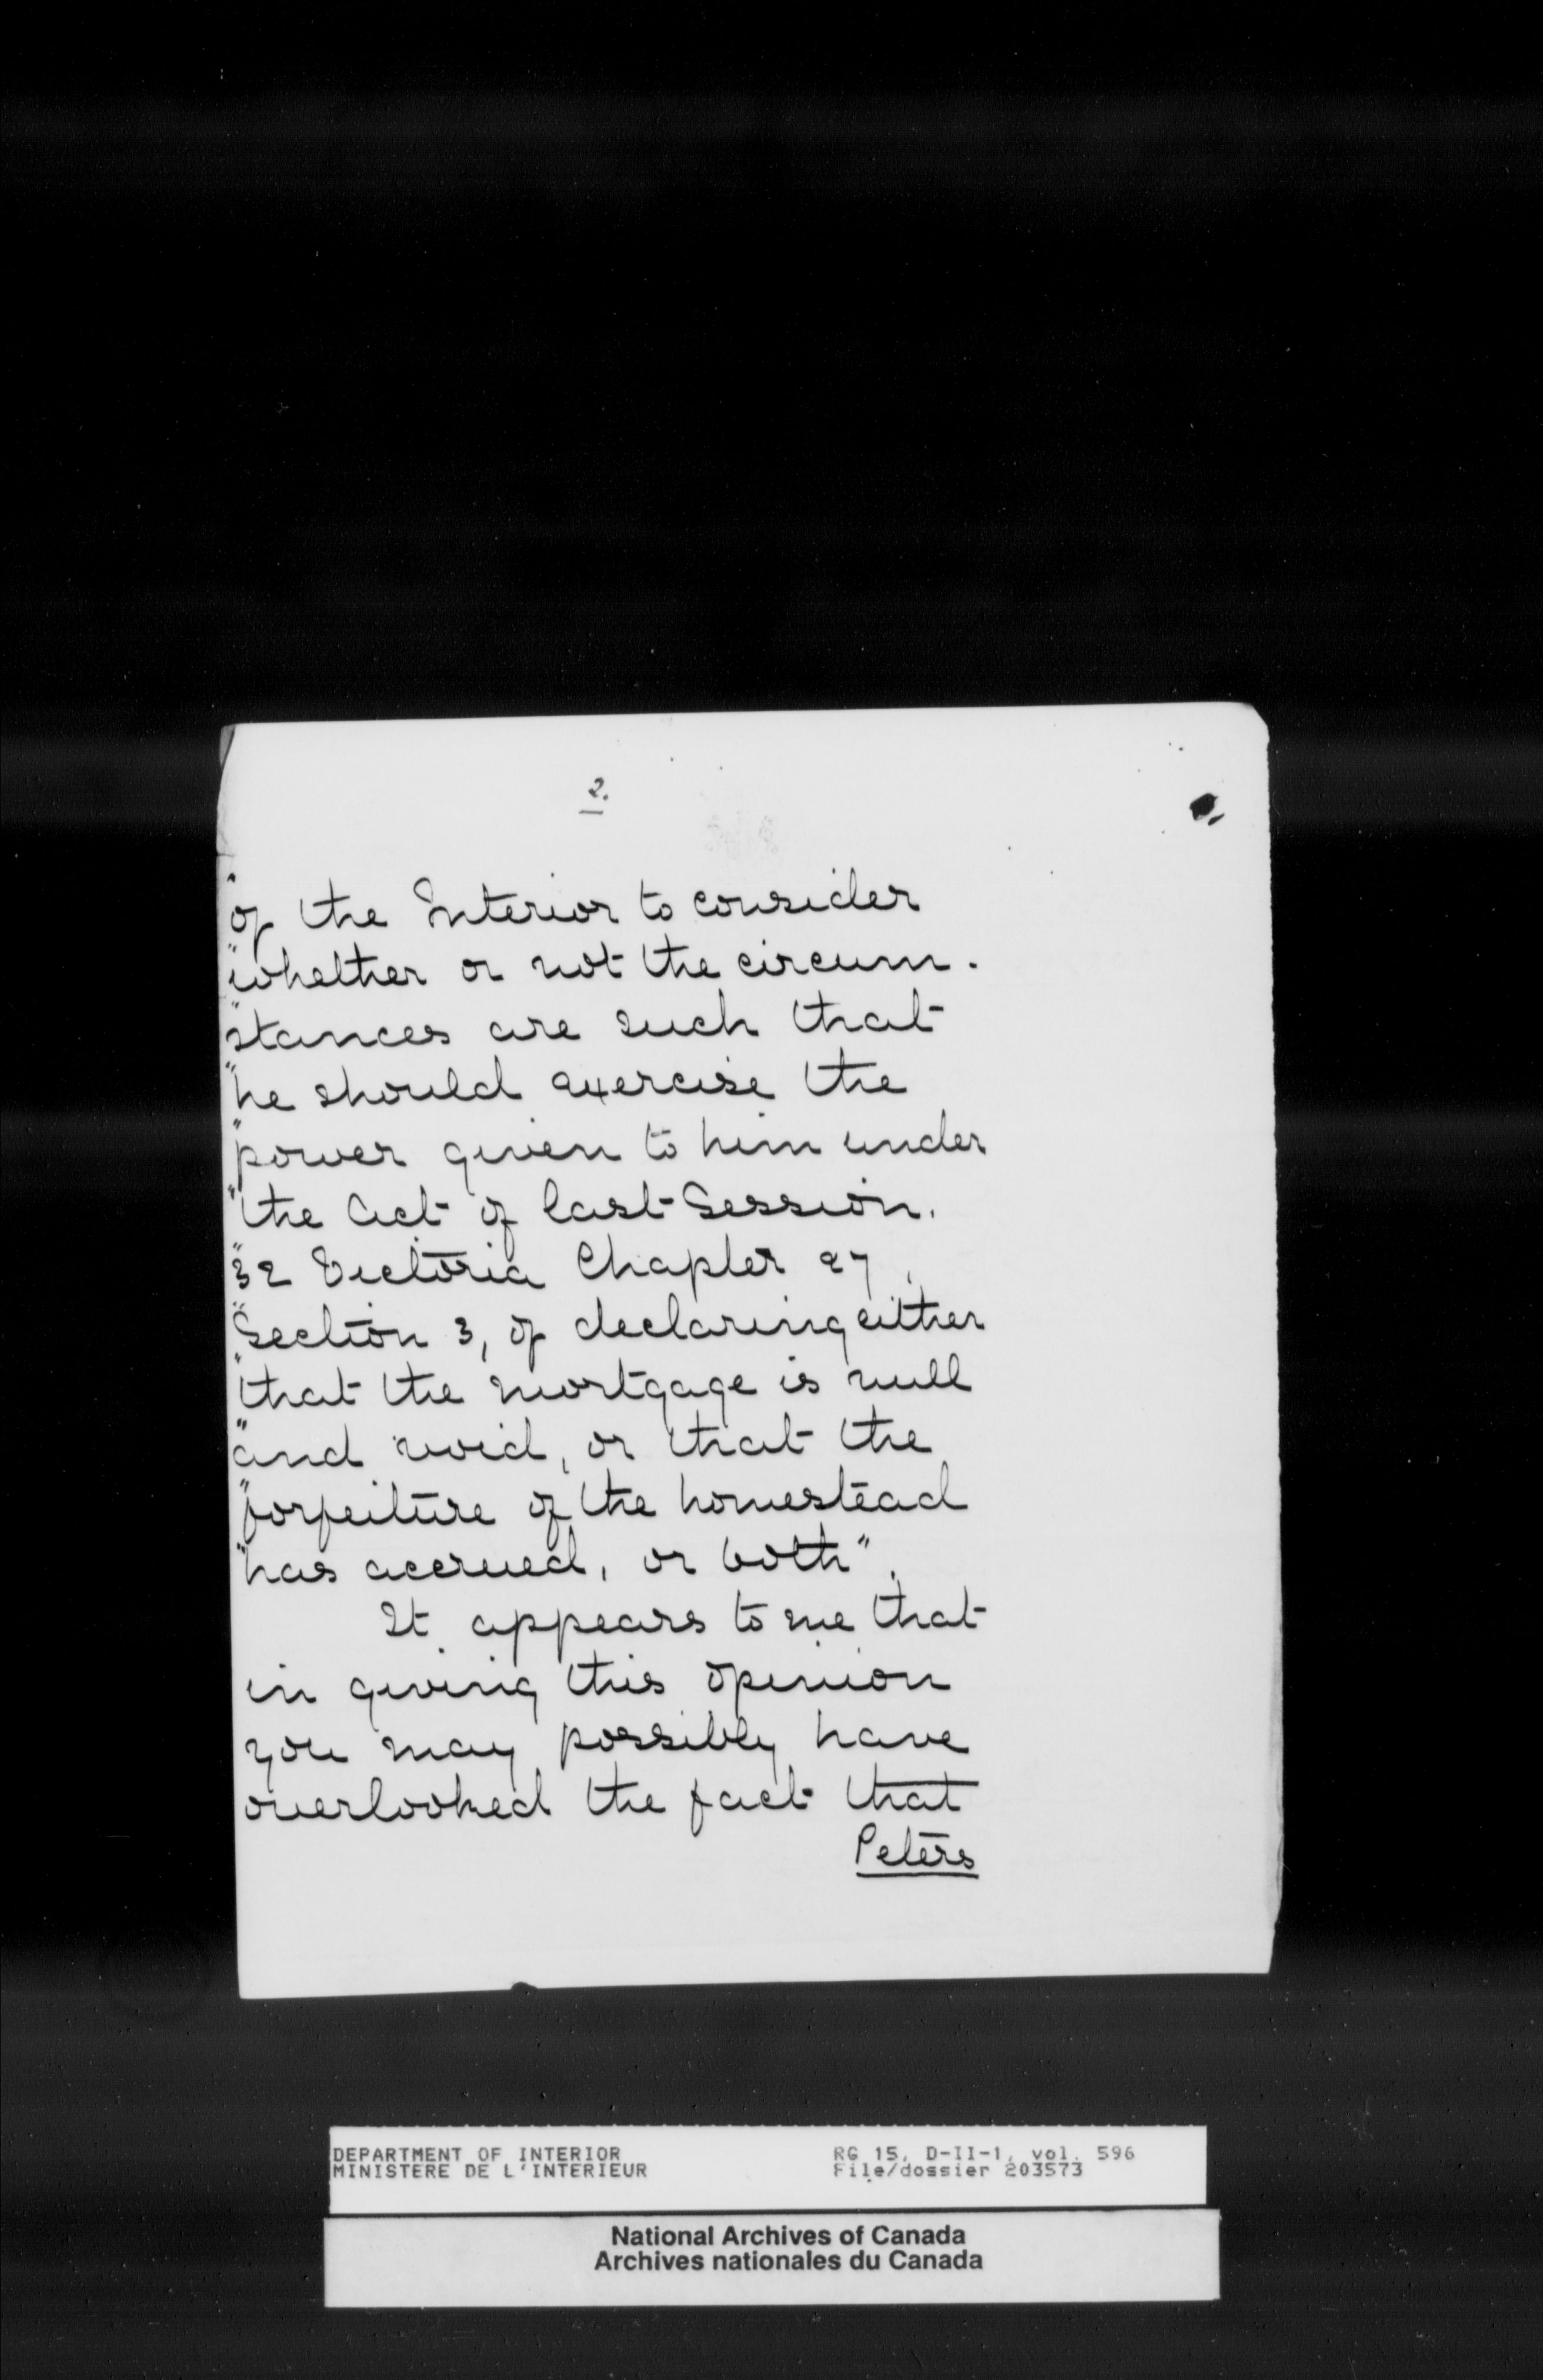 2.
"of the Interior to consider
"whether or not the circum-
"stances are such that
"he should exercise the
"power given to him under
"the Act of last Session,
"32 Victoria Chapter 27,
"Section 3, of declaring either
"that the mortgage is null
"and void, or that the
"forfeiture of the homestead
"has accrued, or both".
It appears to me that
in giving this opinion
you may possibly have
overlooked the fact that
Peters
DEPARTMENT OF INTERIOR RG 15, D-II-1, vol. 596
MINISTERE DE L'INTERIEUR File/dossier 203573
National Archives of Canada
Archives nationales du Canada